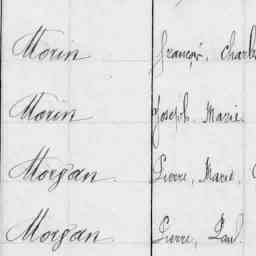 Morin François, Charl
Morin Joseph, Marie
Morgan Pierre, Marie,
Morgan Pierre, Paul.